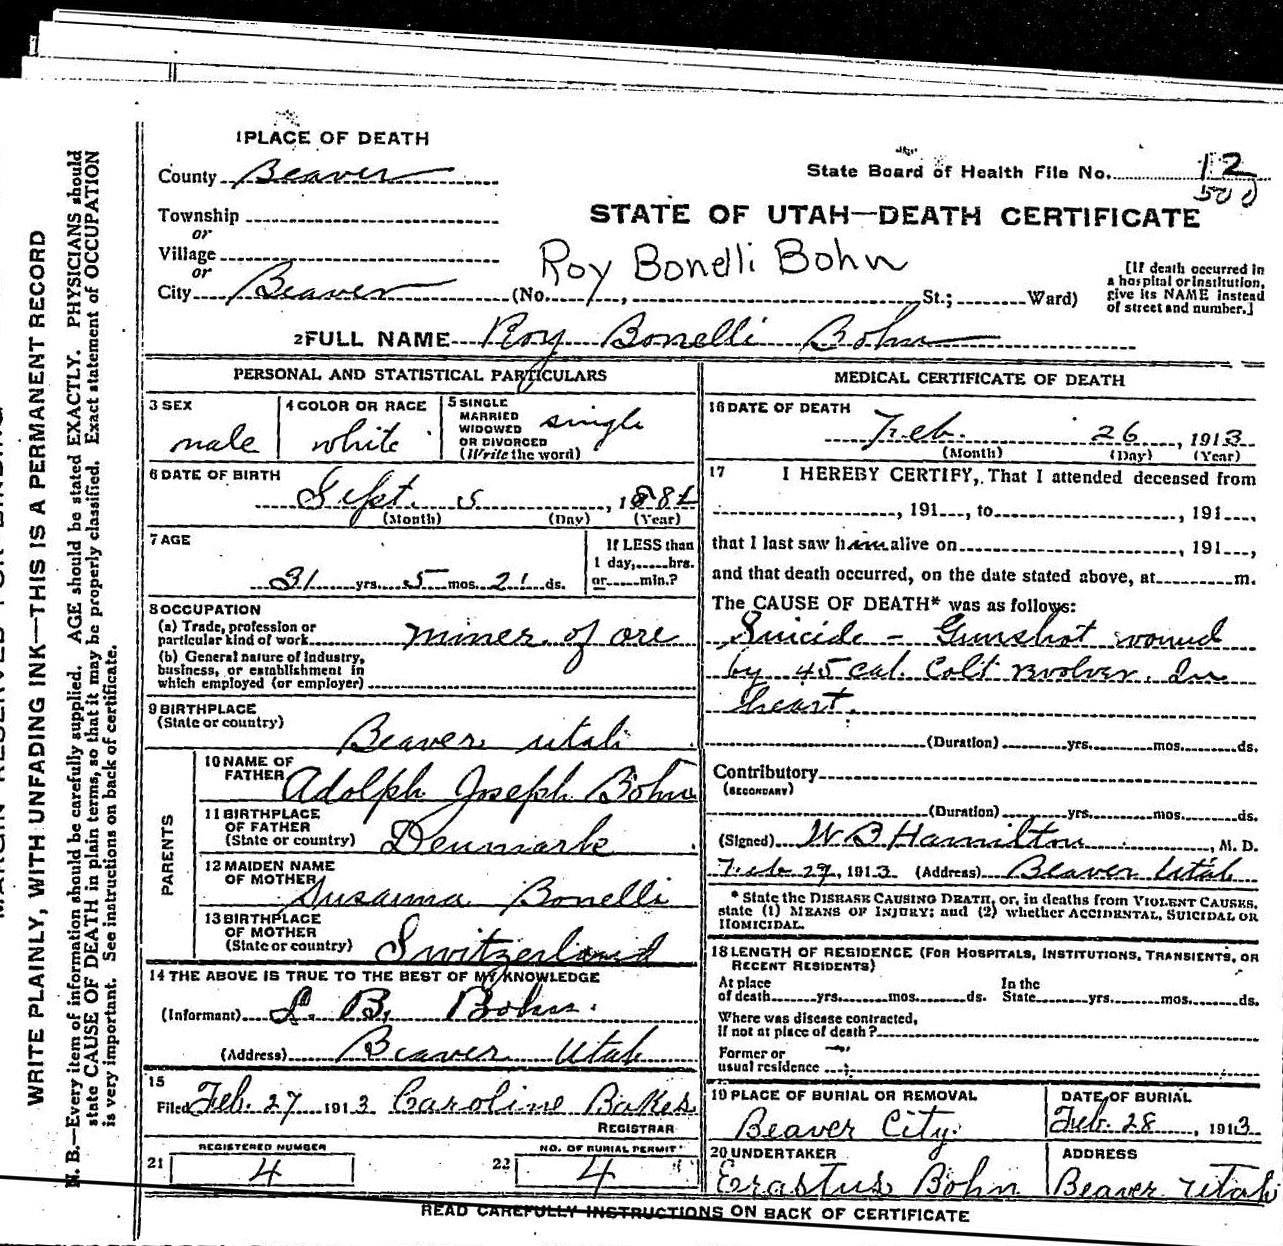 1 PLACE OF DEATH
County Beaver
State Board of Health File No. 12
500
Township
or
Village
or
City Beaver
STATE OF UTAH—DEATH CERTIFICATE
Roy Bonelli Bohn
(No. , St.; Ward)
[If death occurred in
a hospital or institution,
give its NAME instead
of street and number.]
2 FULL NAME Roy Bonelli Bohn
PERSONAL AND STATISTICAL PARTICULARS
3 SEX
male
4 COLOR OR RACE
white
5 SINGLE
MARRIED
WIDOWED
OR DIVORCED
(Write the word)
single
6 DATE OF BIRTH
Sept. 5, 1881
(Month) (Day) (Year)
7 AGE
31 yrs. 5 mos. 21 ds.
If LESS than
1 day, hrs.
or min.?
8 OCCUPATION
(a) Trade, profession or
particular kind of work miner of ore
(b) General nature of industry,
business, or establishment in
which employed (or employer)
9 BIRTHPLACE
(State or country)
Beaver utah
PARENTS
10 NAME OF
FATHER Adolph Joseph Bohn
11 BIRTHPLACE
OF FATHER
(State or country) Denmark
12 MAIDEN NAME
OF MOTHER Susanna Bonelli
13 BIRTHPLACE
OF MOTHER
(State or country) Switzerland
14 THE ABOVE IS TRUE TO THE BEST OF MY KNOWLEDGE
(Informant) L. B. Bohn.
(Address) Beaver Utah
15
Filed Feb. 27 1913 Caroline Bakes
REGISTRAR
REGISTERED NUMBER
21 4
NO. OF BURIAL PERMIT
22 4
MEDICAL CERTIFICATE OF DEATH
16 DATE OF DEATH
Feb. 26, 1913
(Month) (Day) (Year)
17 I HEREBY CERTIFY, That I attended deceased from
, 191 , to , 191 ,
that I last saw him alive on , 191 ,
and that death occurred, on the date stated above, at m.
The CAUSE OF DEATH* was as follows:
Suicide - Gunshot wound
by 45 cal. Colt revolver. In
heart.
(Duration) yrs. mos. ds.
Contributory
(SECONDARY)
(Duration) yrs. mos. ds.
(Signed) W B Hamilton, M. D.
Feb 27, 1913 (Address) Beaver Utah
* State the DISEASE CAUSING DEATH, or, in deaths from VIOLENT CAUSES,
state (1) MEANS OF INJURY; and (2) whether ACCIDENTAL, SUICIDAL OR
HOMICIDAL.
18 LENGTH OF RESIDENCE (FOR HOSPITALS, INSTITUTIONS, TRANSIENTS, OR
RECENT RESIDENTS)
At place In the
of death yrs. mos. ds. State yrs. mos. ds.
Where was disease contracted,
if not at place of death?
Former or
usual residence
19 PLACE OF BURIAL OR REMOVAL
Beaver City.
DATE OF BURIAL
Feb. 28, 1913
20 UNDERTAKER
Erastus Bohn
ADDRESS
Beaver Utah
READ CAREFULLY INSTRUCTIONS ON BACK OF CERTIFICATE
WRITE PLAINLY, WITH UNFADING INK—THIS IS A PERMANENT RECORD
N. B.—Every item of information should be carefully supplied. AGE should be stated EXACTLY. PHYSICIANS should
state CAUSE OF DEATH in plain terms, so that it may be properly classified. Exact statement of OCCUPATION
is very important. See instructions on back of certificate.